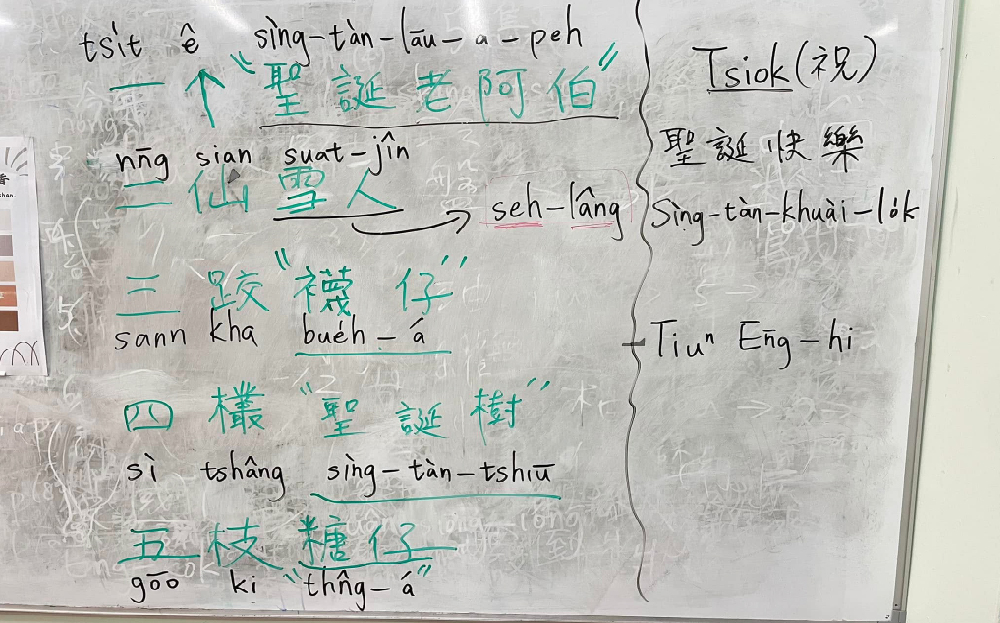 tsi̍t ê sìng-tàn-lāu-a-peh
一个“聖誕老阿伯”
nn̄g sian suat-jîn
二仙雪人
seh-lâng
三跤“襪仔”
sann kha bue̍h-á
四欉“聖誕樹”
sì tshâng sìng-tàn-tshiū
五枝糖仔
gōo ki “thn̂g-á”
Tsiok(祝)
聖誕快樂
Sìng-tàn-khuài-lo̍k
Tiuⁿ Eng-hi